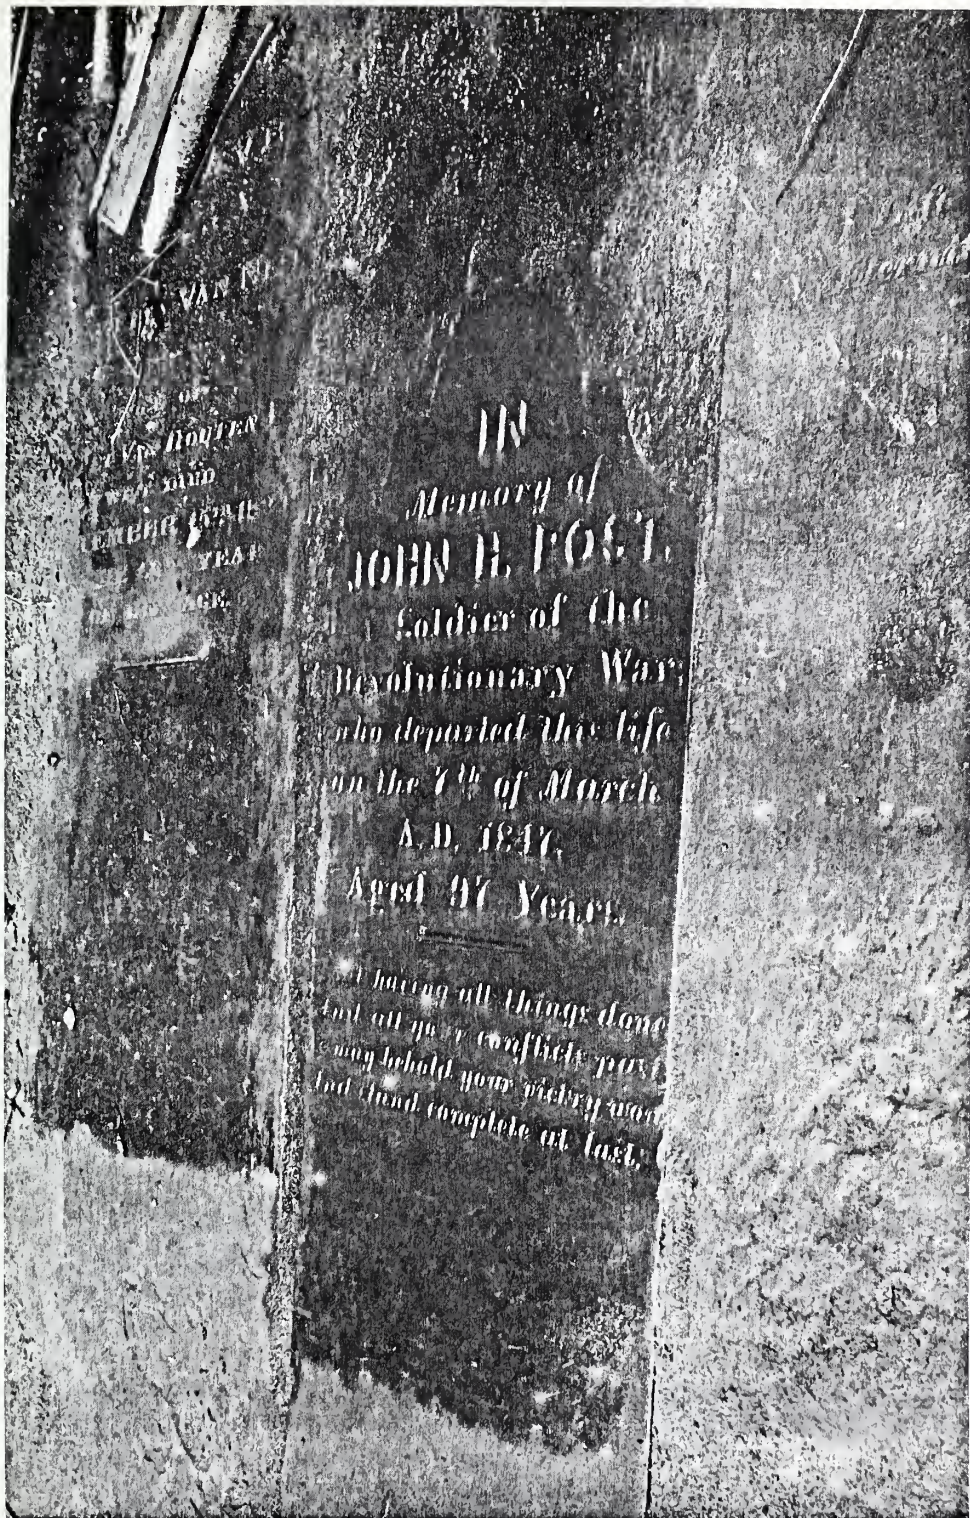 VAN
OF
ROUTEN
DIED
YEAR
AGE
IN
Memory of
JOHN H. POST,
Soldier of the
Revolutionary War;
who departed this life
on the 7th of March
A.D. 1847,
Aged 97 Years.
having all things done
And all your conflicts past,
may behold your victory won
And stand complete at last.